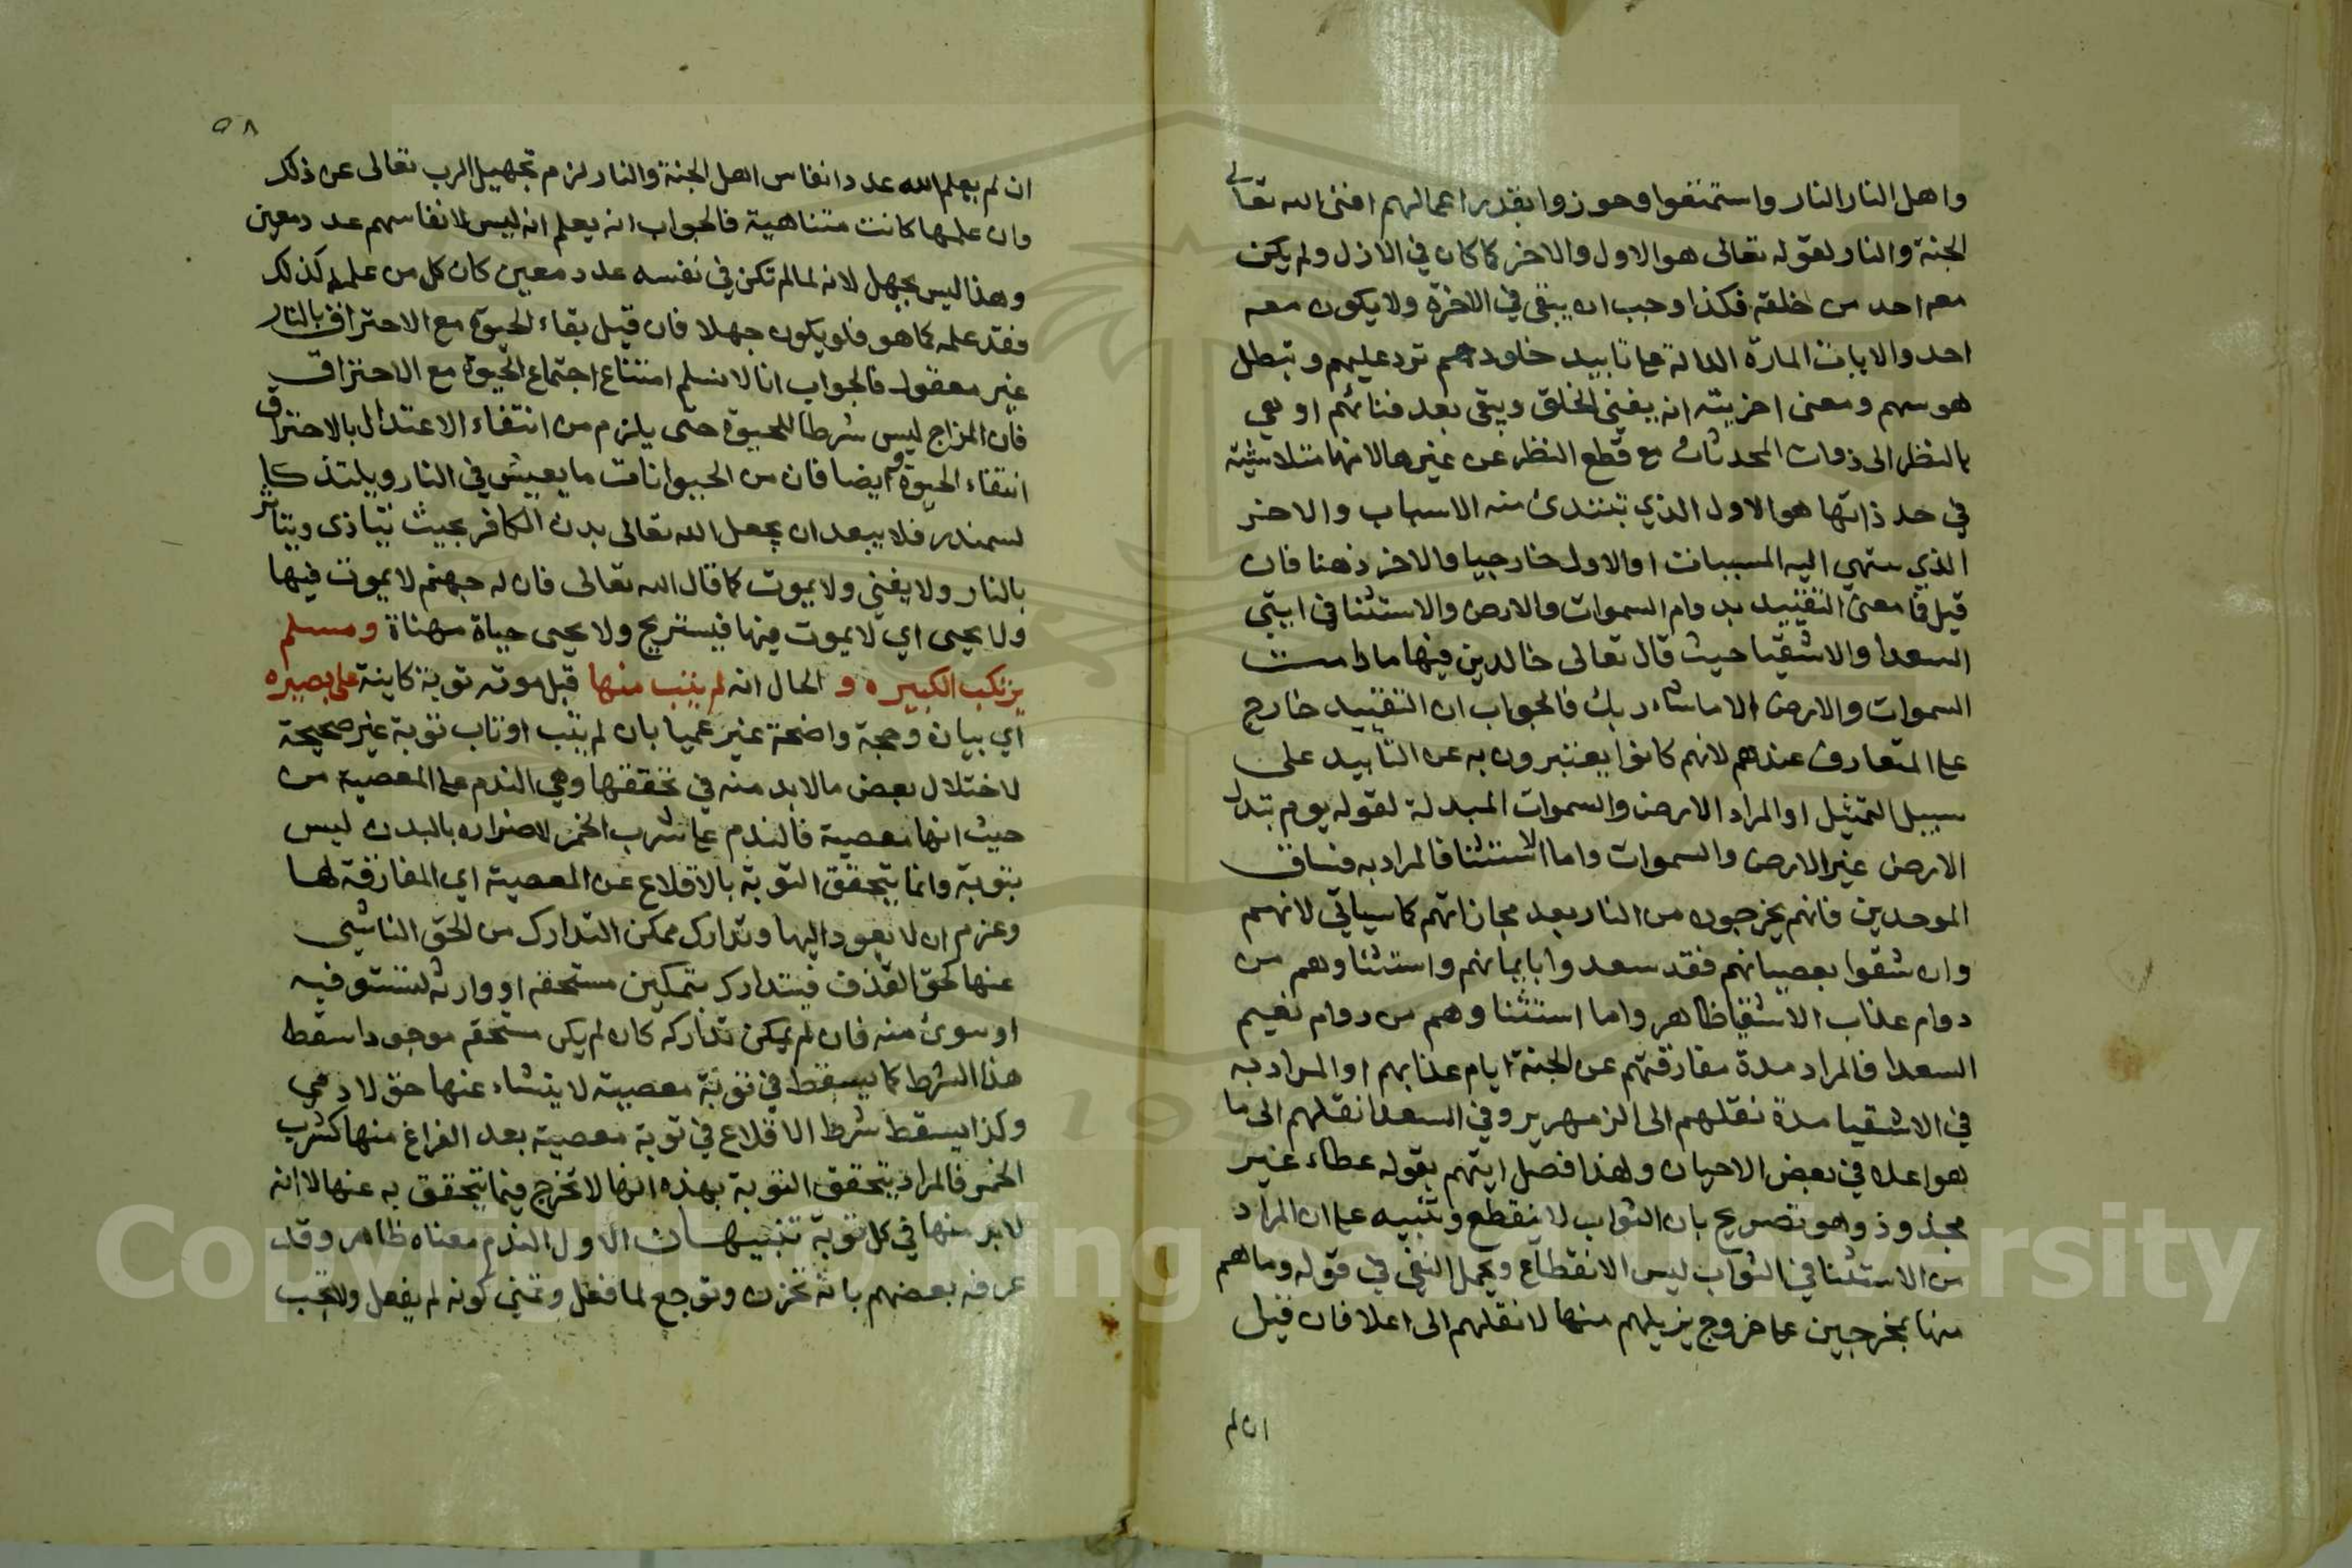 واهل النار النار واستمتعوا وحوزوا بقدر اعمالهم افنى الله تعالى
الجنة والنار لقوله تعالى هو الاول والاخر كما كان في الازل ولم يكن
معه احد من خلقه فكذا وجب ان يبقى في الاخرة ولا يكون معه
احد والايات المارة الدالة على تابيد خلودهم ترد عليهم وتبطل
هوسهم ومعنى اخريته انه يفنى الخلق ويبقى بعد فنائهم او هي
بالنظر الى ذوات المحدثات مع قطع النظر عن غيرها لانها متلاشية
في حد ذاتها هو الاول الذي تبتدئ منه الاسباب والاخر
الذي ينتهي اليه المسببات او الاول خارجيا والاخر ذهنا فان
قيل فما معنى التقييد بدوام السموات والارض والاستثنا في ايتي
السعدا والاشقيا حيث قال تعالى خالدين فيها ما دامت
السموات والارض الا ما شاء ربك فالجواب ان التقييد خارج
على المتعارف عندهم لانهم كانوا يعتبرون به عن التابيد على
سبيل التمثيل او المراد الارض والسموات المبدلة لقوله يوم تبدل
الارض غير الارض والسموات واما الاستثنا فالمراد به فساق
الموحدين فانهم يخرجون من النار بعد مجازاتهم كما سياتي لانهم
وان شقوا بعصيانهم فقد سعدوا بايمانهم واستثناوهم من
دوام عذاب الاشقيا ظاهر واما استثناوهم من دوام نعيم
السعدا فالمراد مدة مفارقتهم عن الجنة ايام عذابهم او المراد به
في الاشقيا مدة نقلهم الى الزمهرير وفي السعدا نقلهم الى ما
هو اعلا في بعض الاحيان ولهذا فصل ايتهم بقوله عطاء غير
مجذوذ وهو تصريح بان الثواب لا ينقطع وتنبيه على ان المراد
من الاستثنا في الثواب ليس الانقطاع ويحمل النفي في قوله وما هم
منها بمخرجين على خروج يزيلهم منها لا نقلهم الى اعلا فان قيل
ان لم
٥٨
ان لم يعلم الله عدد انفاس اهل الجنة والنار لزم تجهيل الرب تعالى عن ذلك
وان علمها كانت متناهية فالجواب انه يعلم انه ليس لانفاسهم عدد معين
وهذا ليس بجهل لانه لما لم تكن في نفسه عدد معين كان كل من علمه كذلك
فقد علمه كما هو فلو يكون جهلا فان قيل بقاء الحيوة مع الاحتراق بالنار
غير معقول فالجواب انا لا نسلم امتناع اجتماع الحيوة مع الاحتراق
فان المزاج ليس شرطا للحيوة حتى يلزم من انتفاء الاعتدال بالاحتراق
انتفاء الحيوة وايضا فان من الحيوانات ما يعيش في النار ويلتذ كا
لسمندر فلا يبعد ان يجعل الله تعالى بدن الكافر بحيث يتاذى ويتاثر
بالنار ولا يفنى ولا يموت كما قال الله تعالى فان له جهنم لا يموت فيها
ولا يحيى اي لا يموت فيها فيستريح ولا يحيى حياة مهناة ومسلم
يرتكب الكبيره و الحال انه لم يتب منها قبل موته توبة كاينة على بصيره
اي بيان وحجة واضحة غير عميا بان لم يتب او تاب توبة غير صحيحة
لاختلال بعض ما لا بد منه في تحققها وهي الندم على المعصية من
حيث انها معصية فالندم على شرب الخمر لاضراره بالبدن ليس
بتوبة وانما يتحقق التوبة بالاقلاع عن المعصية اي المفارقة لها
وعزم ان لا يعود اليها وتدارك ممكن التدارك من الحق الناشي
عنها كحق القذف فيتدارك بتمكين مستحقه او وارثه ليستوفيه
او سوى منه فان لم يمكن تداركه كان لم يكن مستحقه موجودا سقط
هذا الشرط كما يسقط في توبة معصية لا ينشاء عنها حق لادمي
وكذا يسقط شرط الاقلاع في توبة معصية بعد الفراغ منها كشرب
الخمر فالمراد بتحقق التوبة بهذه انها لا تخرج فيما يتحقق به عنها لا انه
لا بد منها في كل توبة تنبيهات الاول الندم معناه ظاهر وقد
عرفه بعضهم بانه تحزن وتوجع لما فعل وتمنى كونه لم يفعل ولا تجب